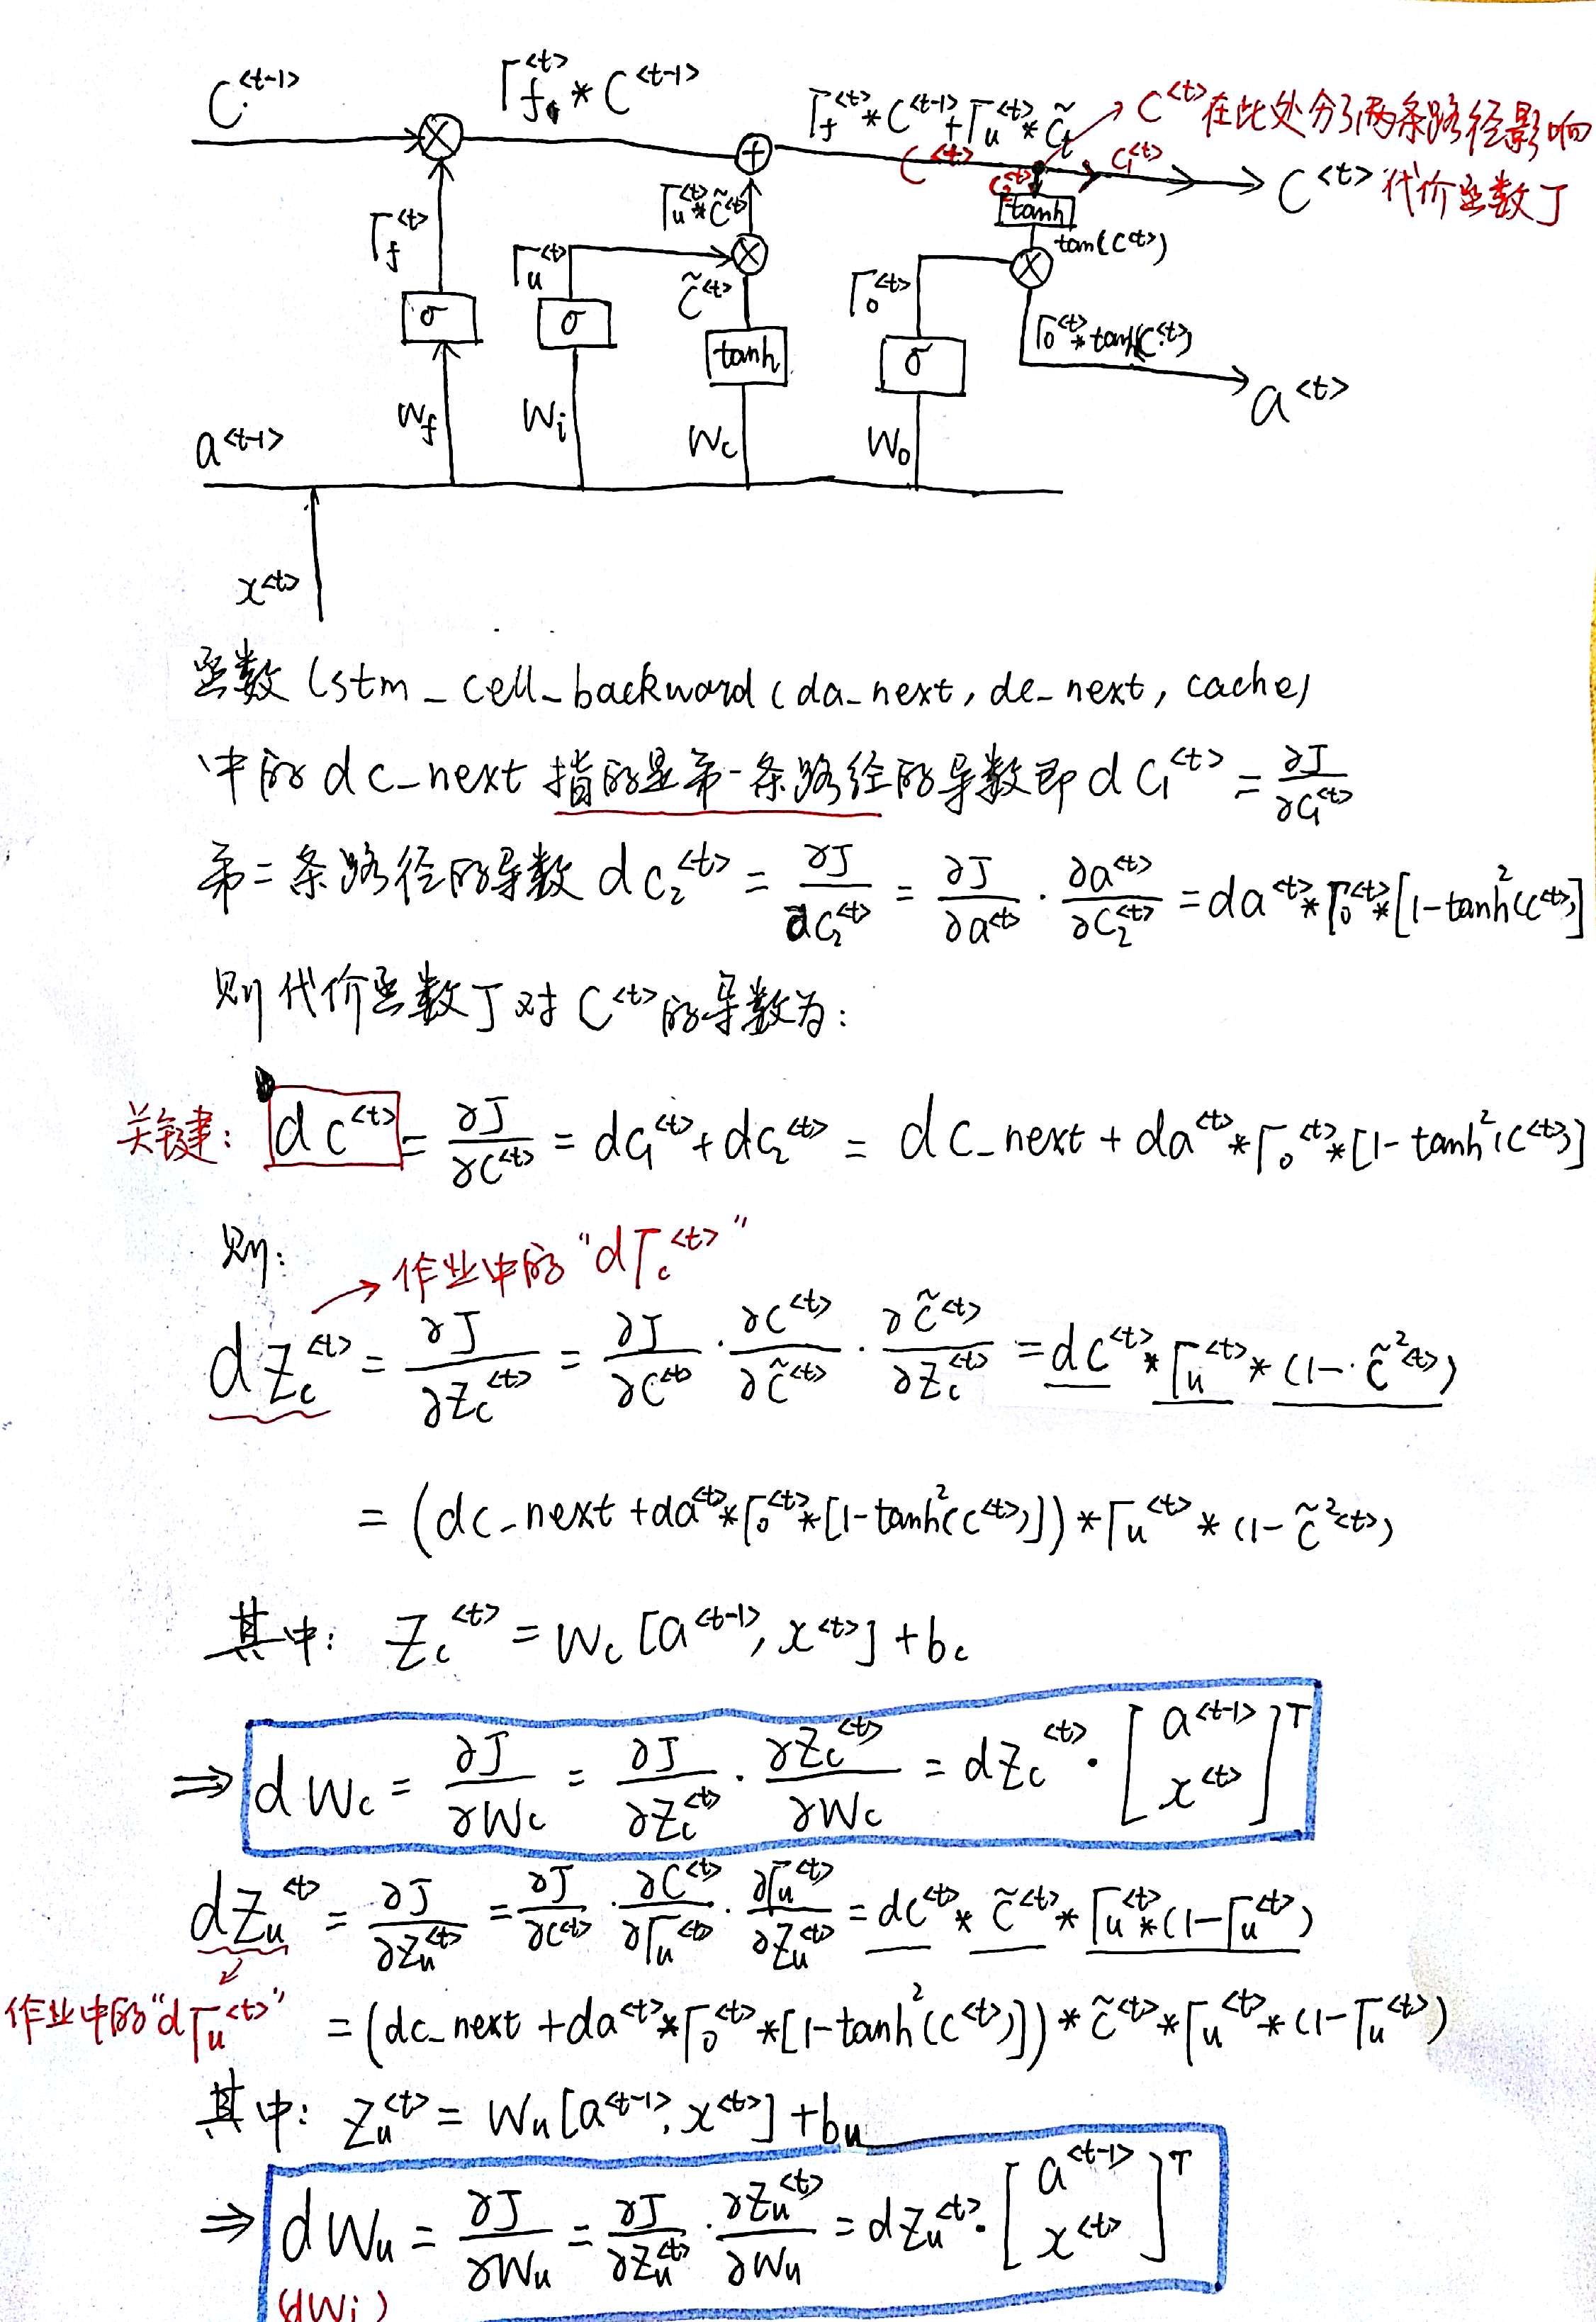 C^{<t-1>}
Γ_f^{<t>} * C^{<t-1>}
Γ_f^{<t>} * C^{<t-1>} + Γ_u^{<t>} * C̃_t
C^{<t>}在此处分了两条路径影响
代价函数J
C^{<t>}
C_2^{<t>}
C_1^{<t>}
C^{<t>}
Γ_f^{<t>}
Γ_u^{<t>}
Γ_u^{<t>} * C̃^{<t>}
C̃^{<t>}
tanh
tan(C^{<t>})
Γ_o^{<t>}
σ
σ
tanh
σ
Γ_o^{<t>} * tanh(C^{<t>})
a^{<t>}
W_f
W_i
W_c
W_o
a^{<t-1>}
x^{<t>}
函数 lstm_cell_backward(da_next, dc_next, cache)
中的 dc_next 指的是第一条路径的导数即 dC_1^{<t>} = ∂J/∂C_1^{<t>}
第二条路径的导数 dC_2^{<t>} = ∂J/∂C_2^{<t>} = ∂J/∂a^{<t>} · ∂a^{<t>}/∂C_2^{<t>} = da^{<t>} * Γ_o^{<t>} * [1-tanh²(C^{<t>})]
则代价函数J对C^{<t>}的导数为:
关键: dC^{<t>} = ∂J/∂C^{<t>} = dC_1^{<t>} + dC_2^{<t>} = dc_next + da^{<t>} * Γ_o^{<t>} * [1-tanh²(C^{<t>})]
则:
作业中的"dΓ_c^{<t>}"
dZ_c^{<t>} = ∂J/∂Z_c^{<t>} = ∂J/∂C^{<t>} · ∂C^{<t>}/∂C̃^{<t>} · ∂C̃^{<t>}/∂Z_c^{<t>} = dC^{<t>} * Γ_u^{<t>} * (1-C̃^{2<t>})
= (dc_next + da^{<t>} * Γ_o^{<t>} * [1-tanh²(C^{<t>})]) * Γ_u^{<t>} * (1-C̃^{2<t>})
其中: Z_c^{<t>} = W_c[a^{<t-1>}, x^{<t>}] + b_c
⇒ dW_c = ∂J/∂W_c = ∂J/∂Z_c^{<t>} · ∂Z_c^{<t>}/∂W_c = dZ_c^{<t>} · [a^{<t-1>} x^{<t>}]^T
dZ_u^{<t>} = ∂J/∂Z_u^{<t>} = ∂J/∂C^{<t>} · ∂C^{<t>}/∂Γ_u^{<t>} · ∂Γ_u^{<t>}/∂Z_u^{<t>} = dC^{<t>} * C̃^{<t>} * Γ_u^{<t>} * (1-Γ_u^{<t>})
作业中的"dΓ_u^{<t>}"
= (dc_next + da^{<t>} * Γ_o^{<t>} * [1-tanh²(C^{<t>})]) * C̃^{<t>} * Γ_u^{<t>} * (1-Γ_u^{<t>})
其中: Z_u^{<t>} = W_u[a^{<t-1>}, x^{<t>}] + b_u
⇒ dW_u = ∂J/∂W_u = ∂J/∂Z_u^{<t>} · ∂Z_u^{<t>}/∂W_u = dZ_u^{<t>} · [a^{<t-1>} x^{<t>}]^T
(dW_i)